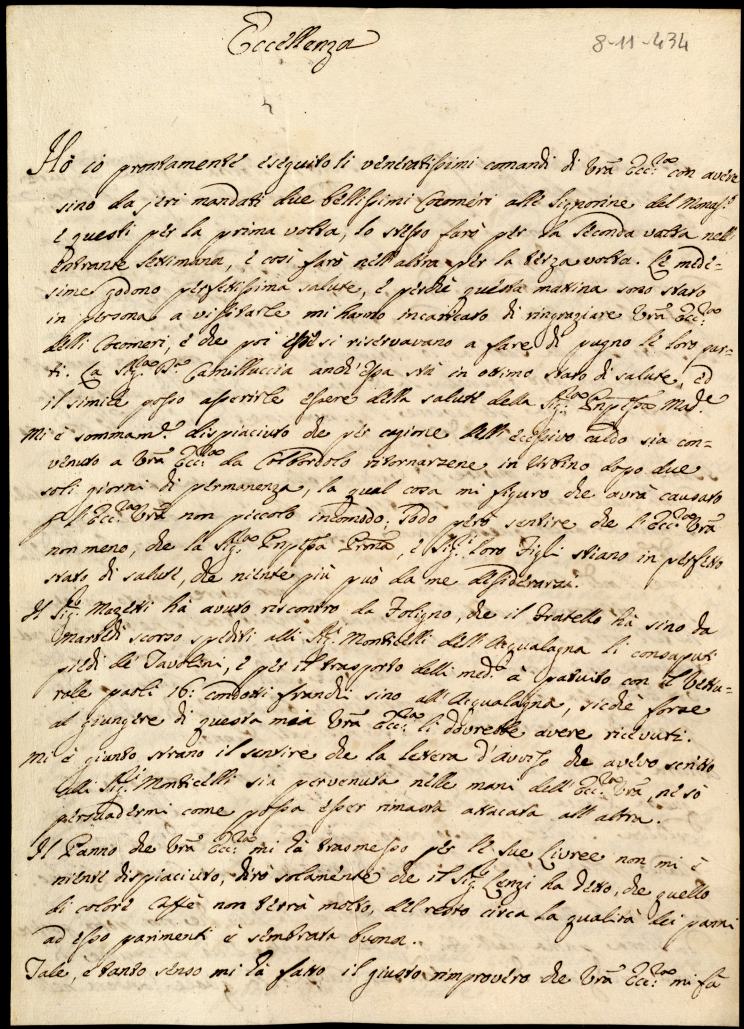 Eccellenza
8-11-434
Hò io prontamente eseguito li veneratissimi comandi di Vrã Ecc.za con avere
sino da jeri mandati due bellissimi Cocomeri alle Signorine del Monas.o
e questi per la prima volta, lo stesso farò per la seconda volta nell'
entrante settimana, e così farò nell'altra per la terza volta. Le mede=
sime godono perfettissima salute, e perchè questa mattina sono stato
in persona a visitarle mi hanno incaricato di ringraziare Vrã Ecc.za
delli Cocomeri, e che poi esse si riservavano a fare di pugno le loro par=
ti. La Sig.ra Camilluccia anch'essa stà in ottimo stato di salute, ed
il simile posso asserirle essere della salute della Sig.ra Pnpessa Mad.e
Mi è sommam.e dispiaciuto che per cagione dell'eccessivo caldo sia con=
venuto a Vrã Ecc.za da Colbordolo ritornarzene in Urbino dopo due
soli giorni di permanenza, la qual cosa mi figuro che avrà causato
all'Ecc.za Vrã non piccolo incomodo; Godo però sentire che l'Ecc.za Vrã
non meno, che la Sig.ra Pnpessa Prona, e Sig.i loro Figli stiano in perfetto
stato di salute, che niente più può da me desiderarzi.
Il Sig.e Mazetti hà avuto riscontro da Foligno, che il Fratello hà sino da
Martedì scorso spediti alli Sig.i Monticelli dell'Acqualagna li consaputi
piedi de Tavolini, e per il trasporto delli med.i à patuito con il Vettu=
rale paoli 16: condotti franchi sino all'Acqualagna, sicchè forze
al giungere di questa mia Vrã Ecc.za li dovrebbe avere ricevuti.
Mi è giunto strano il sentire che la lettera d'avviso che avevo scritto
alli Sig.i Monticelli sia pervenuta nelle mani dell'Ecc.za Vrã, nè sò
persuadermi come possa esser rimasta attacata all'altra.
Il Panno che Vrã Ecc.za mi hà trasmesso per le sue Livree non mi è
niente dispiaciuto, dirò solamente che il Sig.e Lenzi ha detto, che quello
di colore caffè non terrà molto, del resto circa la qualità dei panni
ad esso parimenti è sembrata buona.
Tale, e tanto senso mi hà fatto il giusto rimprovero che Vrã Ecc.za mi fà